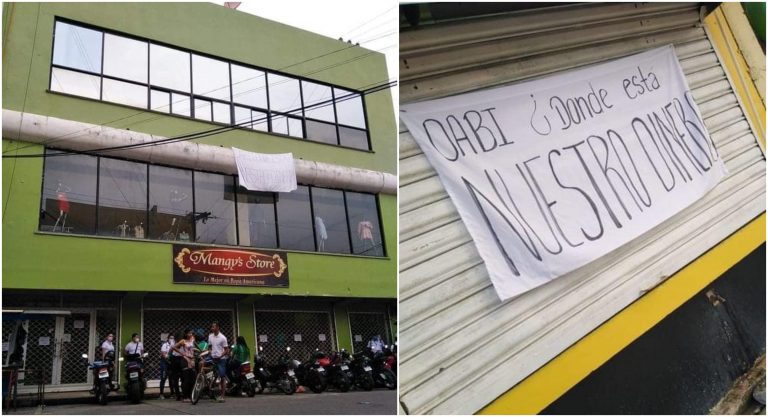 Mangy's Store
Lo Mejor en Ropa Americana
OABI ¿Donde está
NUESTRO DINERO